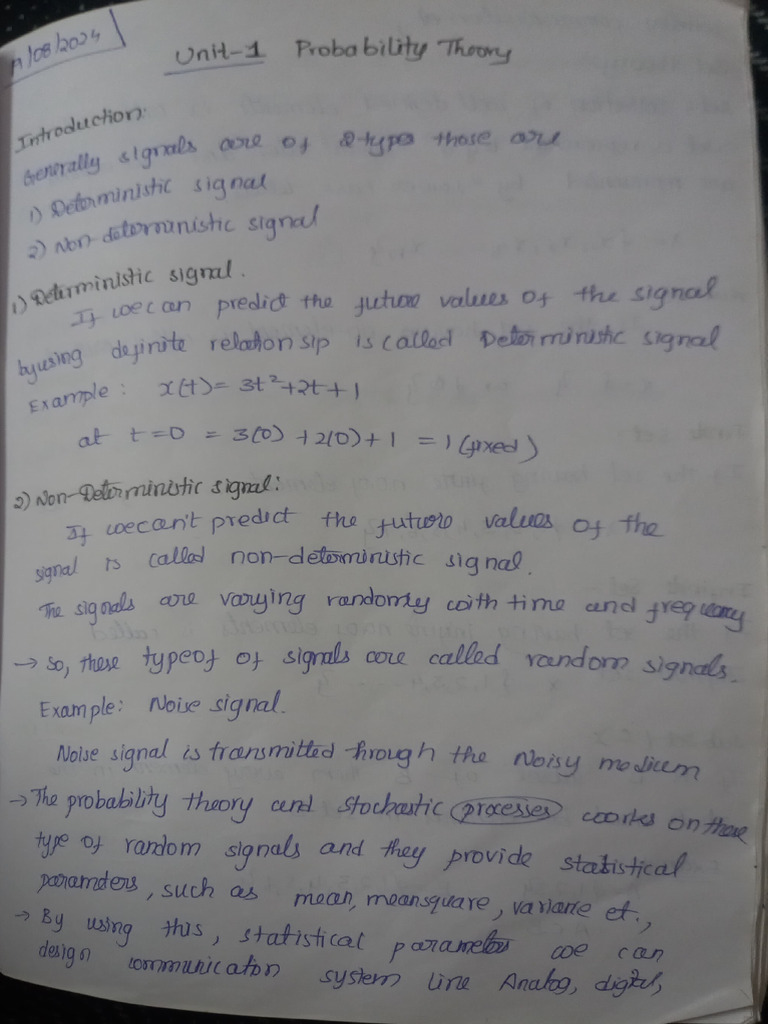 /08/2024
Unit-1 Probability Theory
Introduction:
Generally signals are of 2 types those are
1) Deterministic signal
2) Non deterministic signal
1) Deterministic signal.
If we can predict the future values of the signal
by using definite relationsip is called Deterministic signal
Example: x(t) = 3t²+2t+1
at t=0 = 3(0) +2(0)+1 = 1 (fixed)
2) Non-Deterministic signal:
If we can't predict the future values of the
signal is called non-deterministic signal.
The signals are varying randomly with time and frequency
→ So, these typeof of signals are called random signals.
Example: Noise signal.
Noise signal is transmitted through the Noisy medium
→ The probability theory and stochastic processes works on these
type of random signals and they provide statistical
paramters, such as mean, meansquare, variance et.,
→ By using this, statistical parameters we can
design communication system line Analog, digital,